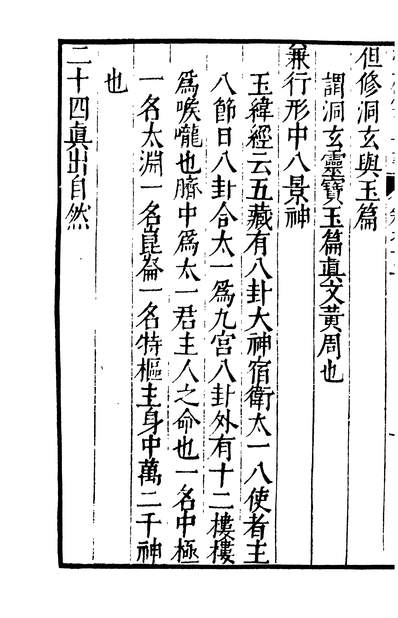 但修洞玄與玉篇
謂洞玄靈寶玉篇眞文黃周也
兼行形中八景神
玉緯經云五藏有八卦大神宿衛太一八使者主
八節日八卦合太一爲九宮八卦外有十二樓樓
爲喉嚨也臍中爲太一君主人之命也一名中極
一名太淵一名崑崙一名特樞主身中萬二千神
也
二十四眞出自然